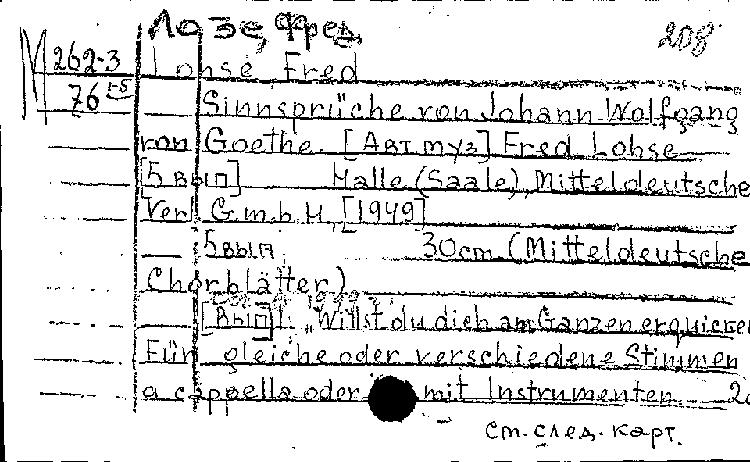 Лозе, Фред.
208
М 262-3
Lohse, Fred
76
Sinnsprüche von Johann Wolfgang
von Goethe. [Авт.муз.] Fred Lohse
[5 вып] Halle (Saale), Mitteldeutsche
Verl. G.m.b.H, [1949]
5 вып. 30cm. (Mitteldeutsche
Chorblätter)
[Вып] 1. „Willst du dich am Ganzen erquicken
Für gleiche oder verschiedene Stimmen
a cappella oder mit Instrumenten
См. след. карт.